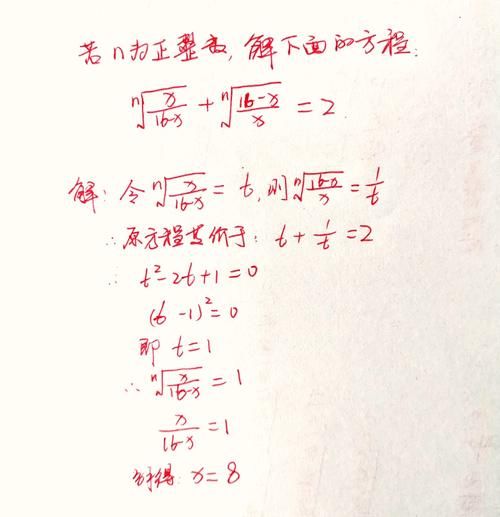 若n为正整数,解下面的方程:
ⁿ√(x/(16-x)) + ⁿ√((16-x)/x) = 2.
解:令 ⁿ√(x/(16-x)) = t,则 ⁿ√((16-x)/x) = 1/t
∴原方程等价于: t + 1/t = 2
∴ t²-2t+1=0
(t-1)²=0
即 t=1
∴ ⁿ√(x/(16-x)) = 1
x/(16-x) = 1
解得: x=8